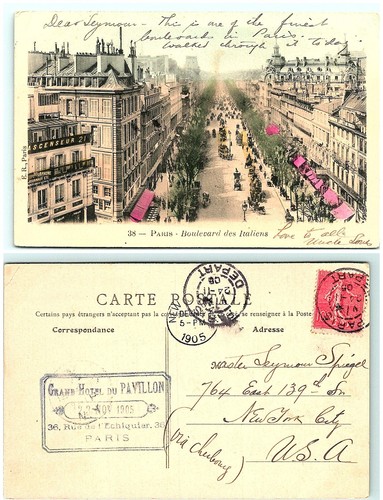 Dear Seymour - This is one of the finest
boulevards in Paris.
walked through it to-day
ASCENSEUR
E. R., Paris
38 — PARIS - Boulevard des Italiens
Love to all
Uncle Lou
CARTE POSTALE
Certains pays étrangers n'acceptent pas la se renseigner à la Poste
Correspondance
Adresse
DEPART
5-PM
1905
GRAND HOTEL DU PAVILLON
NOV 1905
36, Rue de l'Echiquier, 36
PARIS
Master Seymour Spiegel
764 East 139th St
New York City
(via Cherbourg)
U.S.A